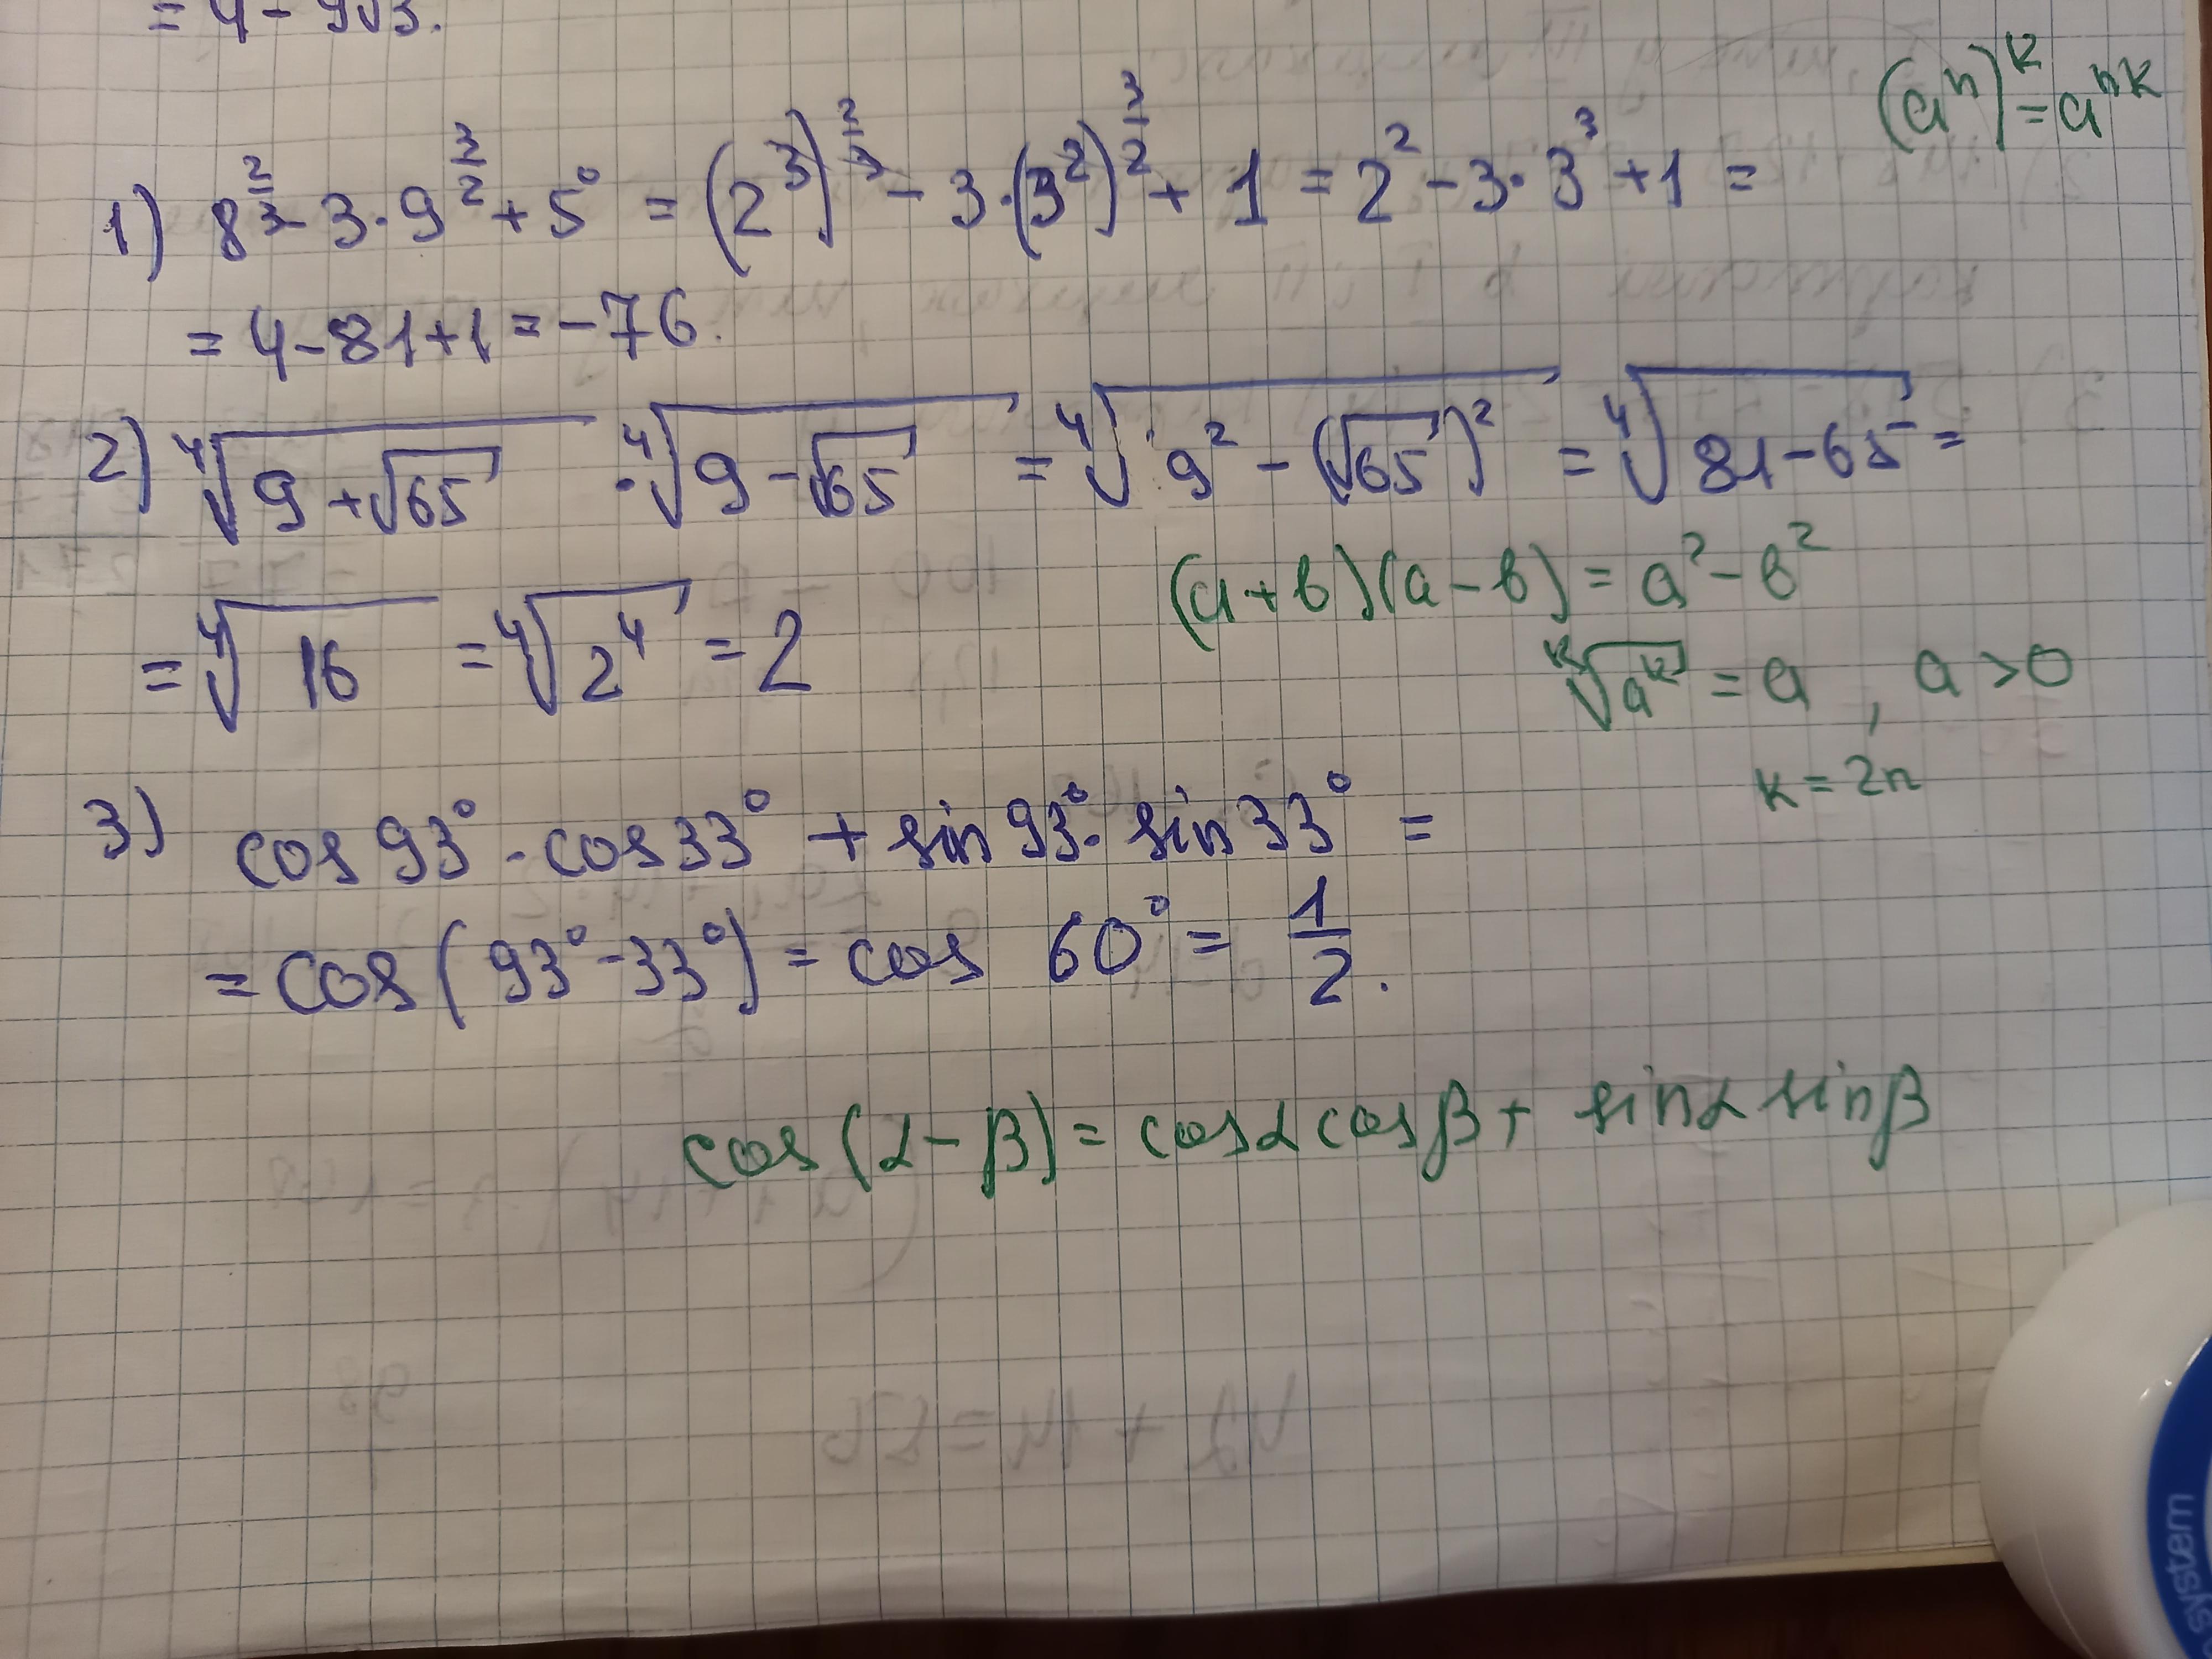 = 4 - 9√3.
(aⁿ)ᵏ = aⁿᵏ
1) 8^(2/3) - 3·9^(3/2) + 5⁰ = (2³)^(2/3) - 3·(3²)^(3/2) + 1 = 2² - 3·3³ + 1 =
= 4 - 81 + 1 = -76.
2) ⁴√(9 + √65) · ⁴√(9 - √65) = ⁴√(9² - (√65)²) = ⁴√(81 - 65) =
(a + b)(a - b) = a² - b²
= ⁴√16 = ⁴√(2⁴) = 2
ᵏ√(aᵏ) = a , a > 0
k = 2n
3) cos 93° · cos 33° + sin 93° · sin 33° =
= cos (93° - 33°) = cos 60° = 1/2.
cos (α - β) = cos α cos β + sin α sin β
system